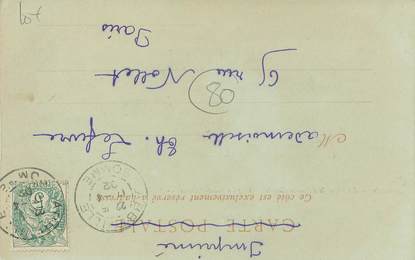 Imprimé
CARTE POSTALE
Ce côté est exclusivement réservé à l'adresse
Mademoiselle Th. Lefevre
65 rue Nollet
Paris
(08)